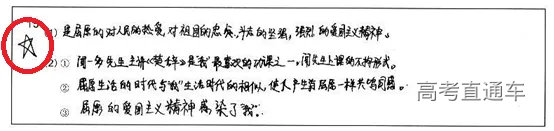 (1) 是屈原的对人民的热爱,对祖国的忠贞,斗志的坚强,强烈的爱国主义精神。
(2)① 闻一多先生主讲《楚辞》是我"最喜欢的功课之一,闻先生上课的不拘形式。
② 屈原生活的时代与我"生活时代的相似,使人产生第屈原一样共鸣同感。
③ 屈原的爱国主义精神感染了我。
高考直通车